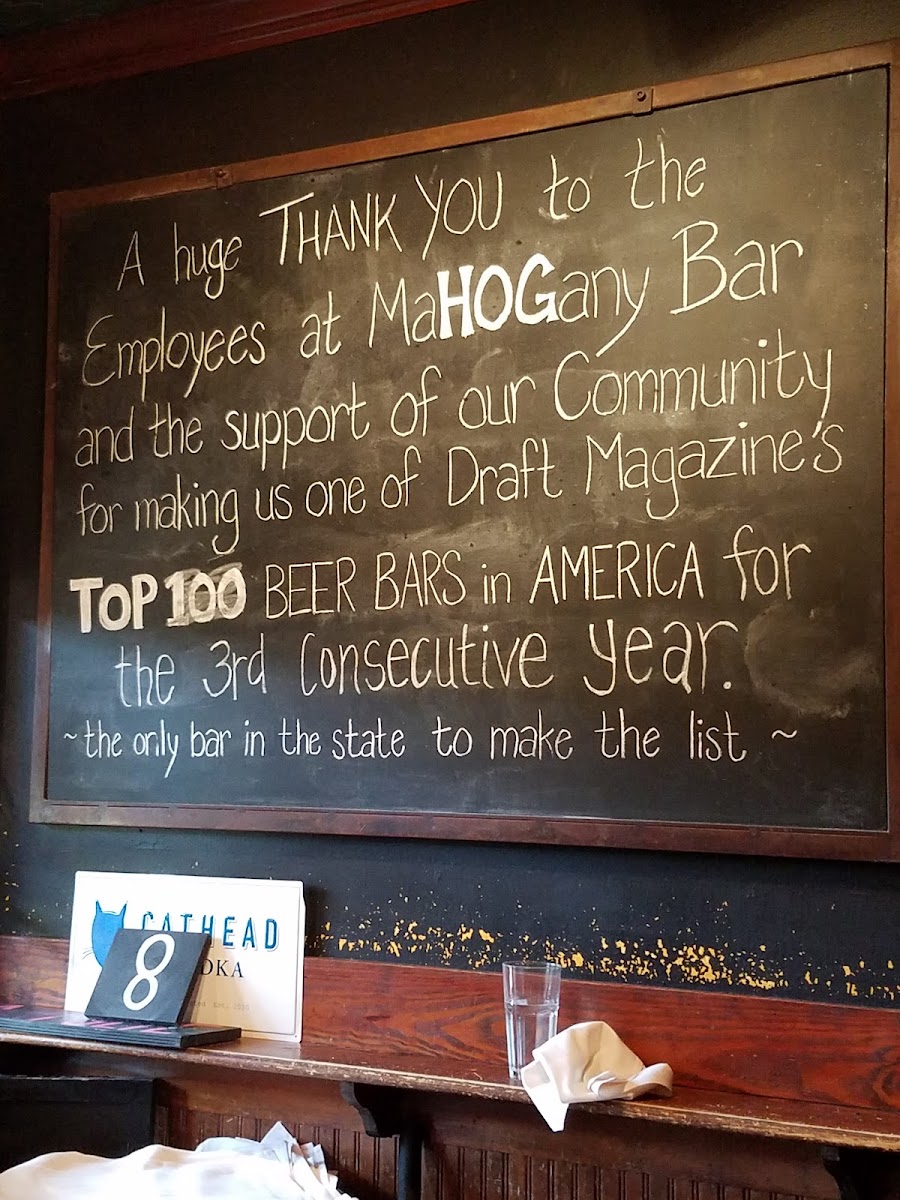 A huge THANK YOU to the
Employees at MaHOGany Bar
and the support of our Community
for making us one of Draft Magazine's
TOP 100 BEER BARS in AMERICA for
the 3rd Consecutive year.
~ the only bar in the state to make the list ~
CATHEAD
8